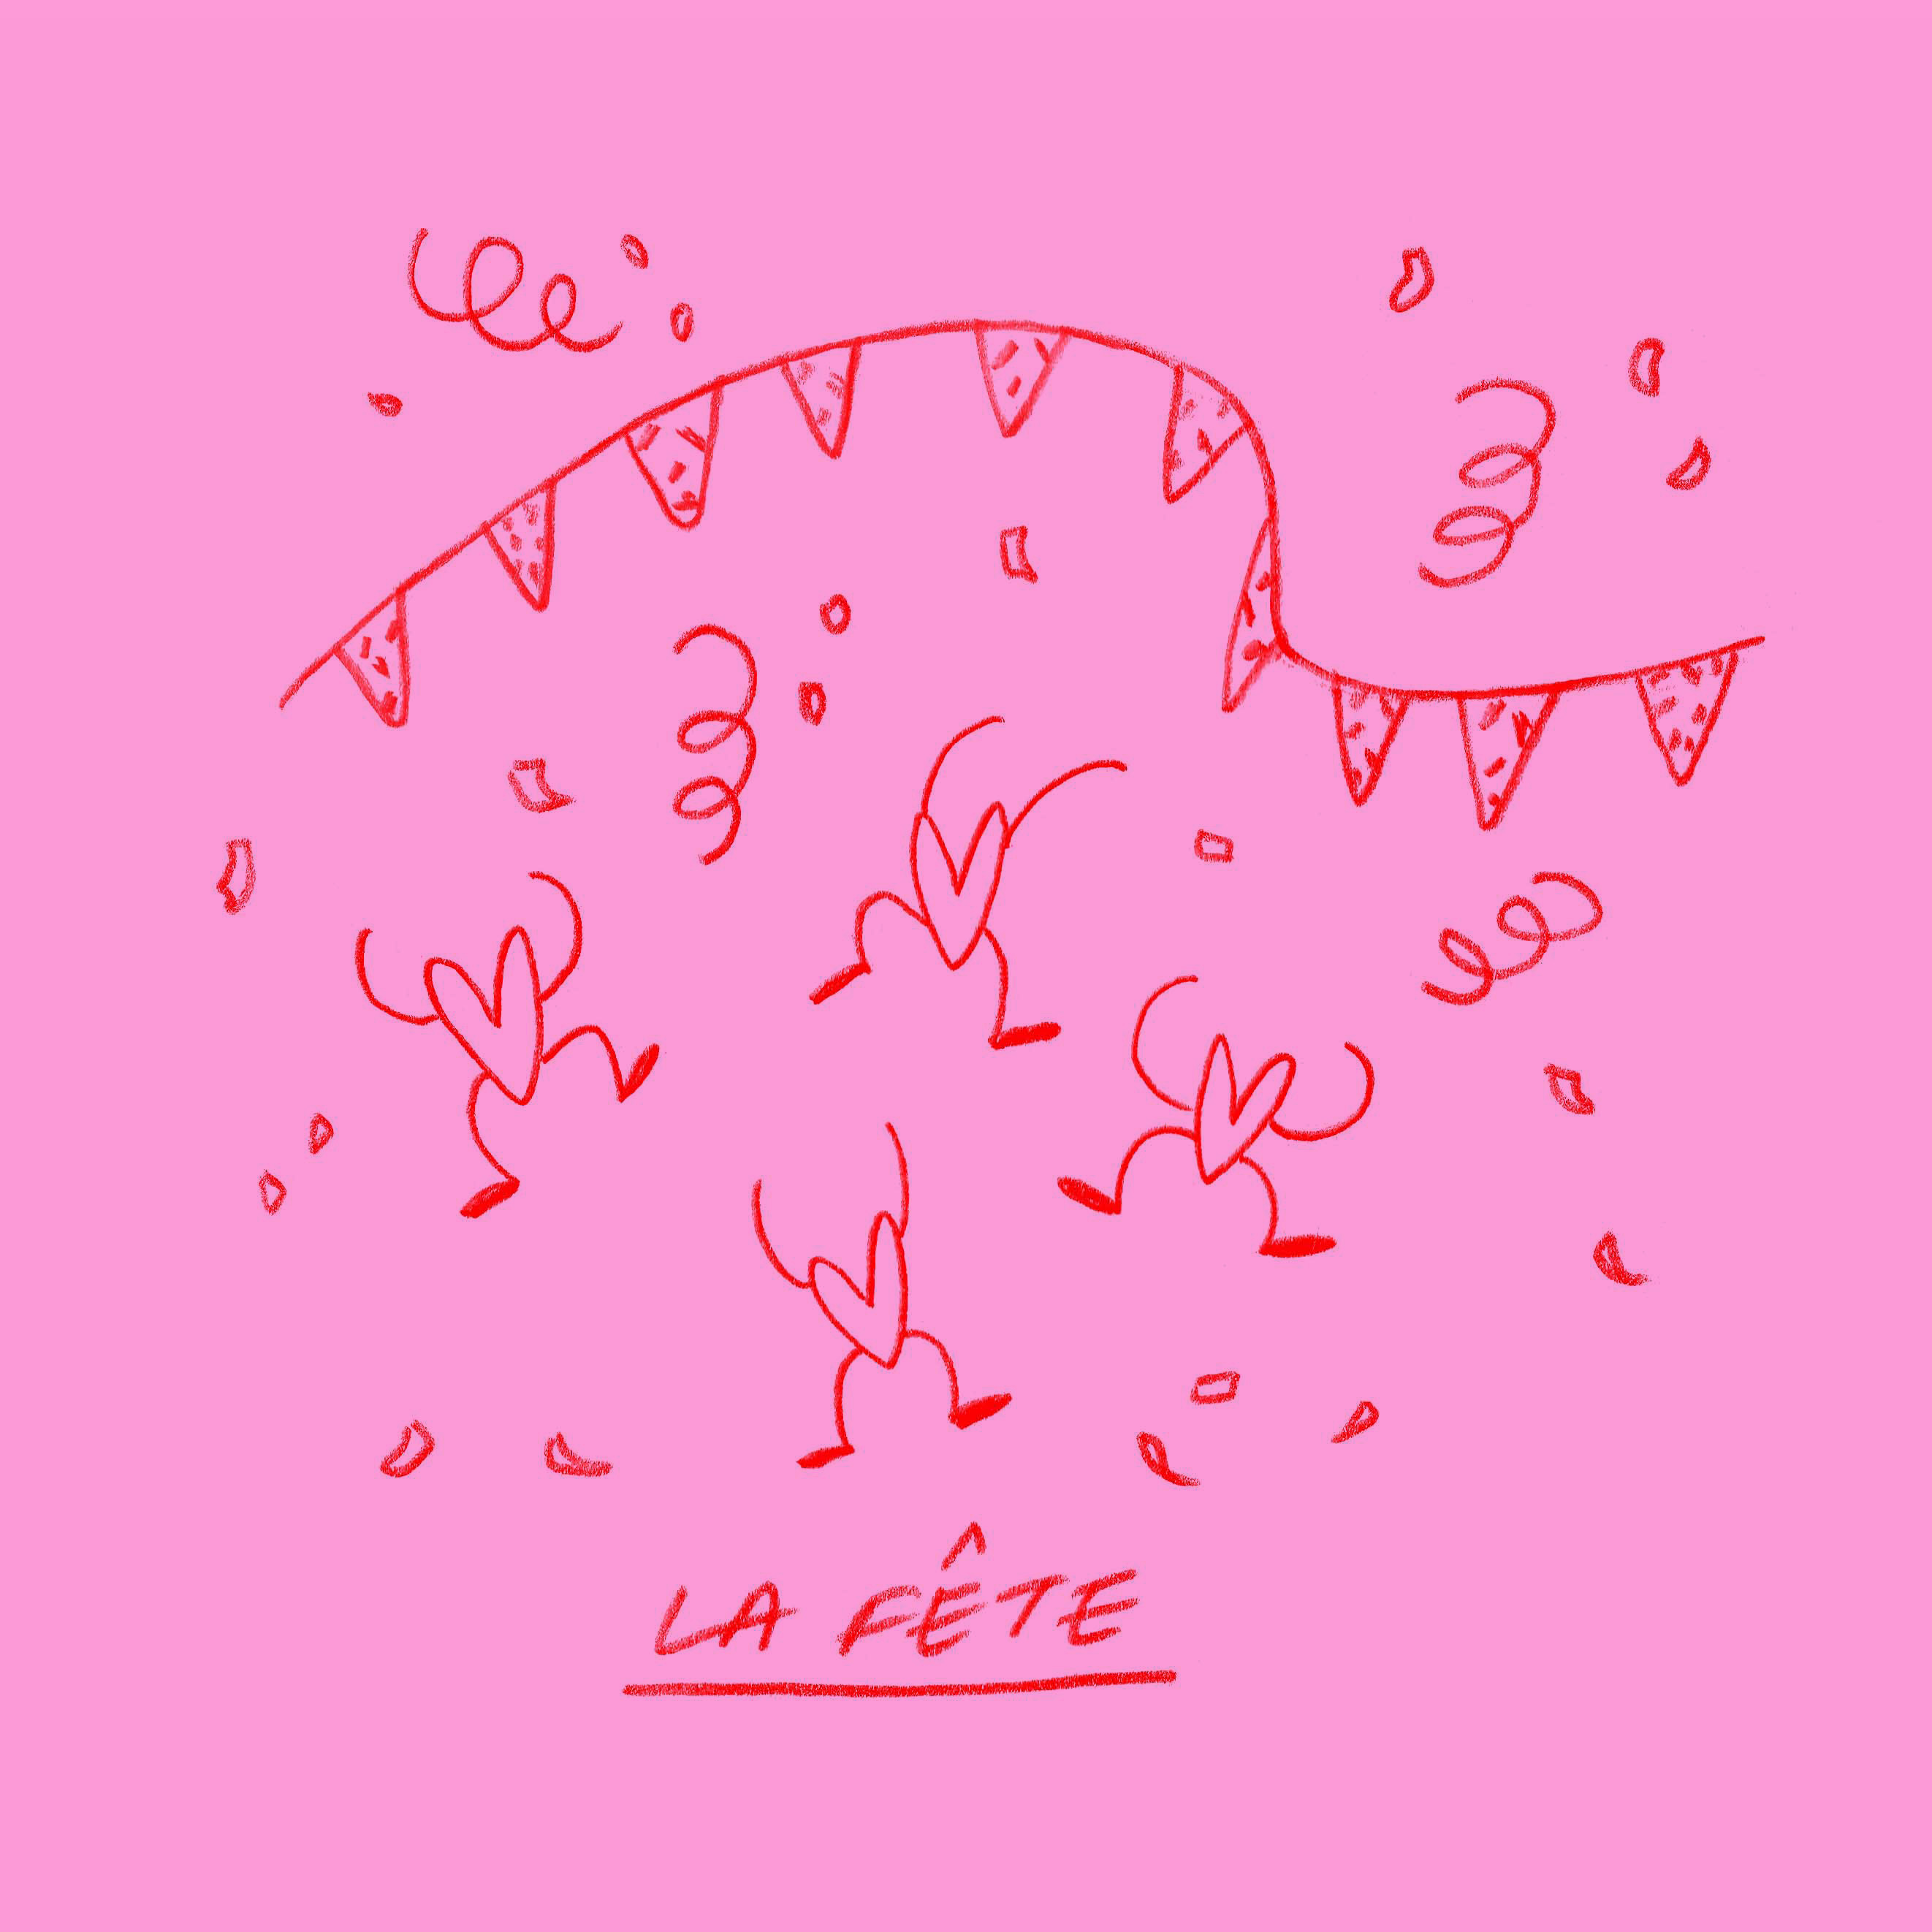 LA FÊTE